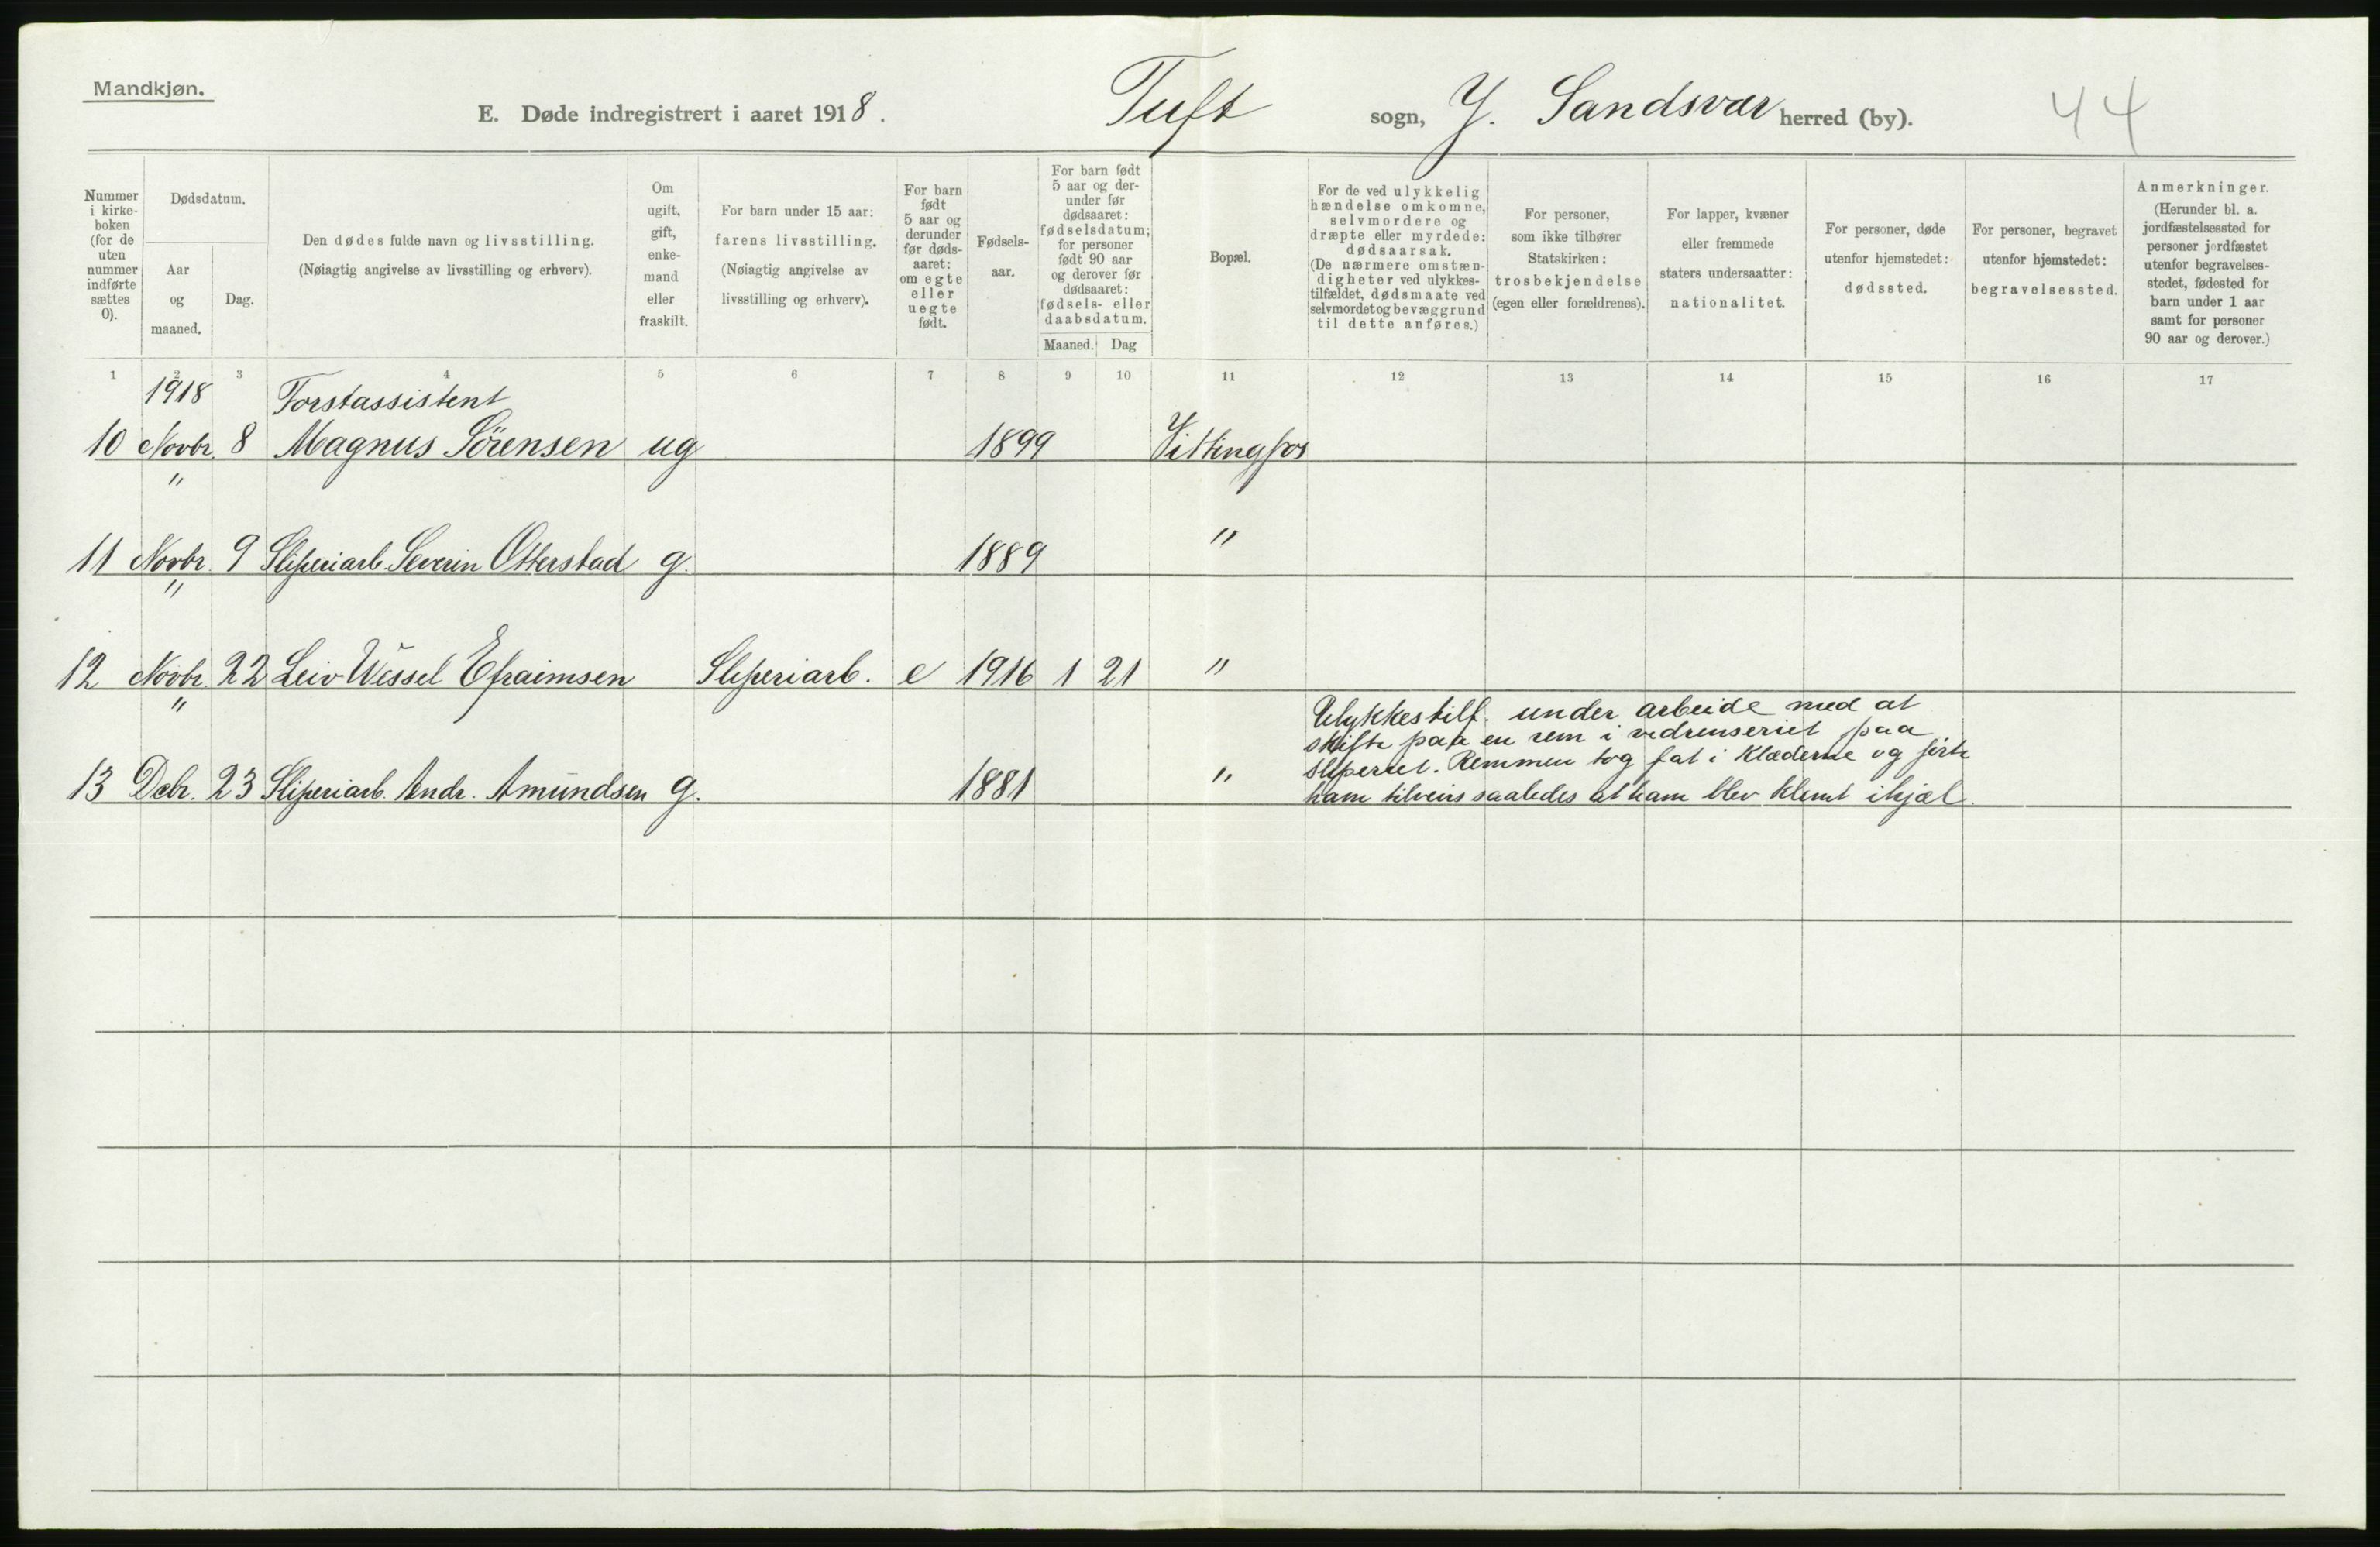 Mandkjøn.
E. Døde indregistrert i aaret 1918.
Tuft sogn, Y. Sandsvær herred (by).
44
Nummer i kirke- boken (for de uten nummer indførte sættes 0).
Dødsdatum.
Aar og maaned.
Dag.
Den dødes fulde navn og livsstilling.
(Nøiagtig angivelse av livsstilling og erhverv).
Om ugift, gift, enke- mand eller fraskilt.
For barn under 15 aar: farens livsstilling.
(Nøiagtig angivelse av livsstilling og erhverv).
For barn født 5 aar og derunder før døds- aaret: om egte eller uegte født.
Fødsels- aar.
For barn født 5 aar og der- under før dødsaaret: fødselsdatum; for personer født 90 aar og derover før dødsaaret: fødsels- eller daabsdatum.
Maaned. Dag
Bopæl.
For de ved ulykkelig hændelse omkomne, selvmordere og dræpte eller myrdede: dødsaarsak.
(De nærmere omstæn- digheter ved ulykkes- tilfældet, dødsmaate ved selvmordet og bevæggrund til dette anføres.)
For personer, som ikke tilhører Statskirken: trosbekjendelse (egen eller forældrenes).
For lapper, kvæner eller fremmede staters undersaatter: nationalitet.
For personer, døde utenfor hjemstedet: dødssted.
For personer, begravet utenfor hjemstedet: begravelsessted.
Anmerkninger.
(Herunder bl. a. jordfæstelsessted for personer jordfæstet utenfor begravelses- stedet, fødested for barn under 1 aar samt for personer 90 aar og derover.)
1 2 3 4 5 6 7 8 9 10 11 12 13 14 15 16 17
1918 Forstassistent
10 Novbr. 8 Magnus Sörensen ug 1899 Vittingfos
"
11 Novbr. 9 Sliperiarb. Severin Otterstad g. 1889 "
"
12 Novbr. 22 Leiv Wessel Efraimsen Sliperiarb. e 1916 1 21 "
"
Ulykkestilf. under arbeide med at
skifte paa en rem i vedrenseriet paa
sliperiet. Remmen tog fat i klæderne og førte
13 Debr. 23 Sliperiarb. Andr. Amundsen g. 1881 " ham tilveirs saaledes at ham blev klemt ihjæl.